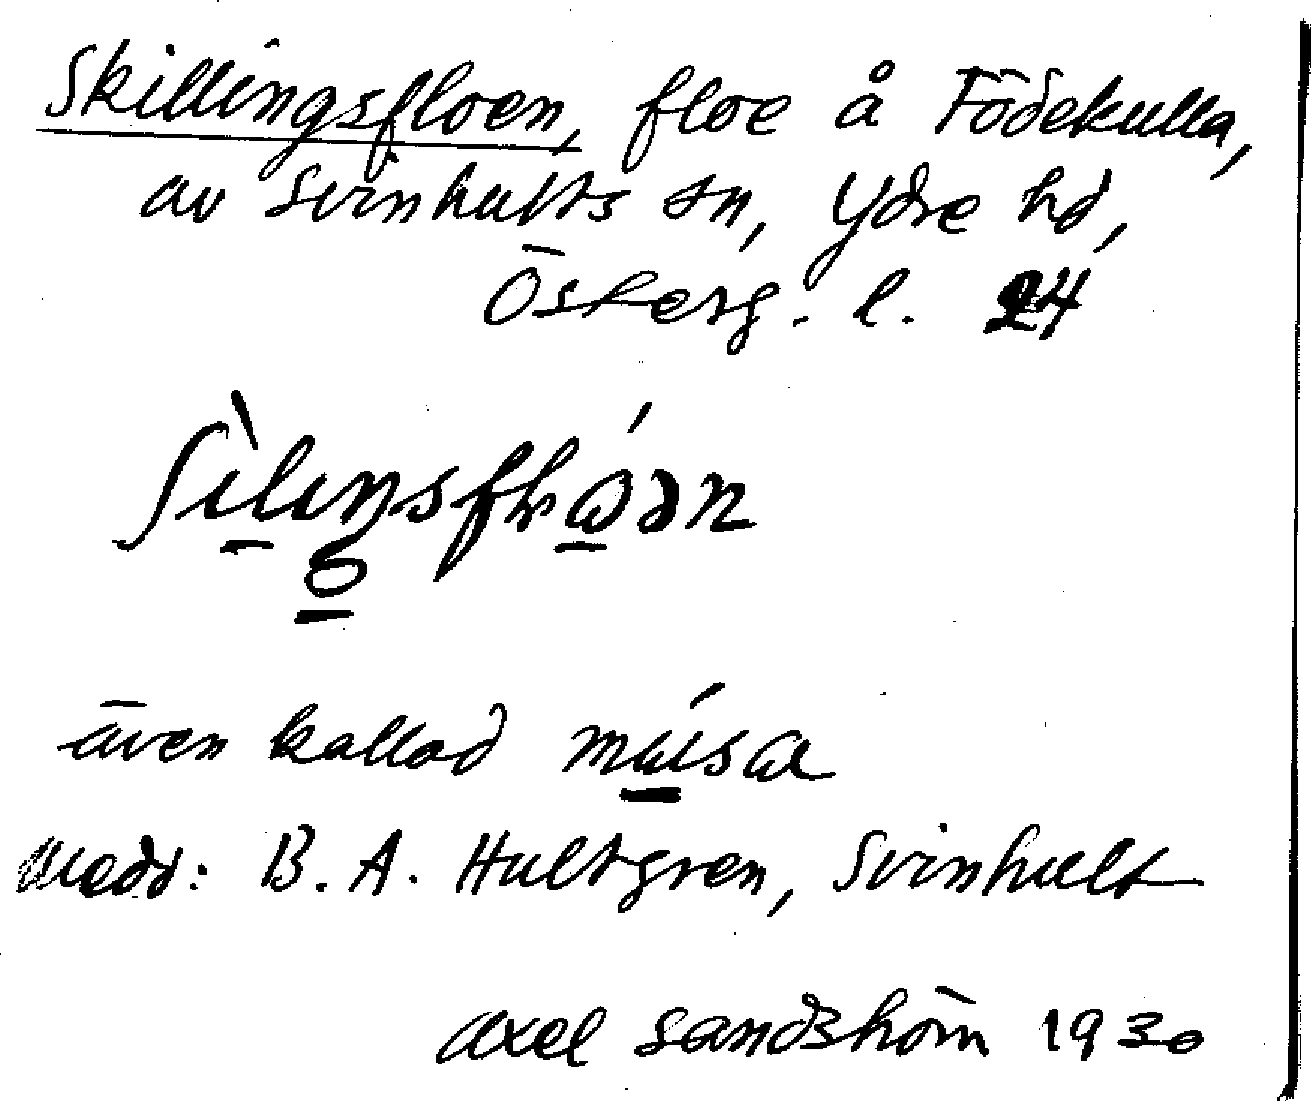 Skillingsfloen, floe å Födekulla,
av Svinhults sn, Ydre hd,
Österg. l. 24
även kallad
Medd: B. A. Hultgren, Svinhult
Axel Sandström 1930